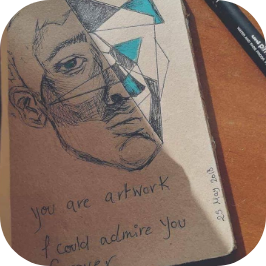 you are artwork
I could admire you
forever
25 May 2018